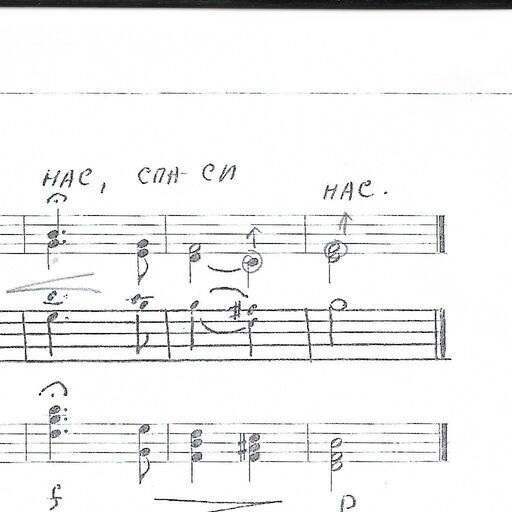 НАС, СПА-СИ НАС.
f p